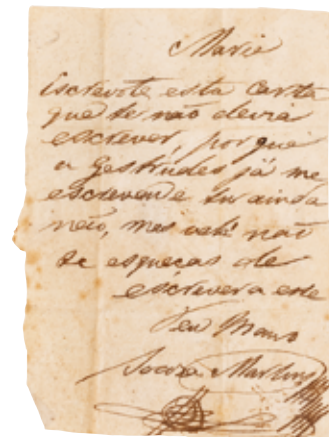 Maria
Escrevote esta Carta
que te não devia
escrever, porque
a Gestrudes já me
escreveu e tu ainda
não, mas vêlá não
te esqueças de
escrever a este
Teu Mano
Souza Martins